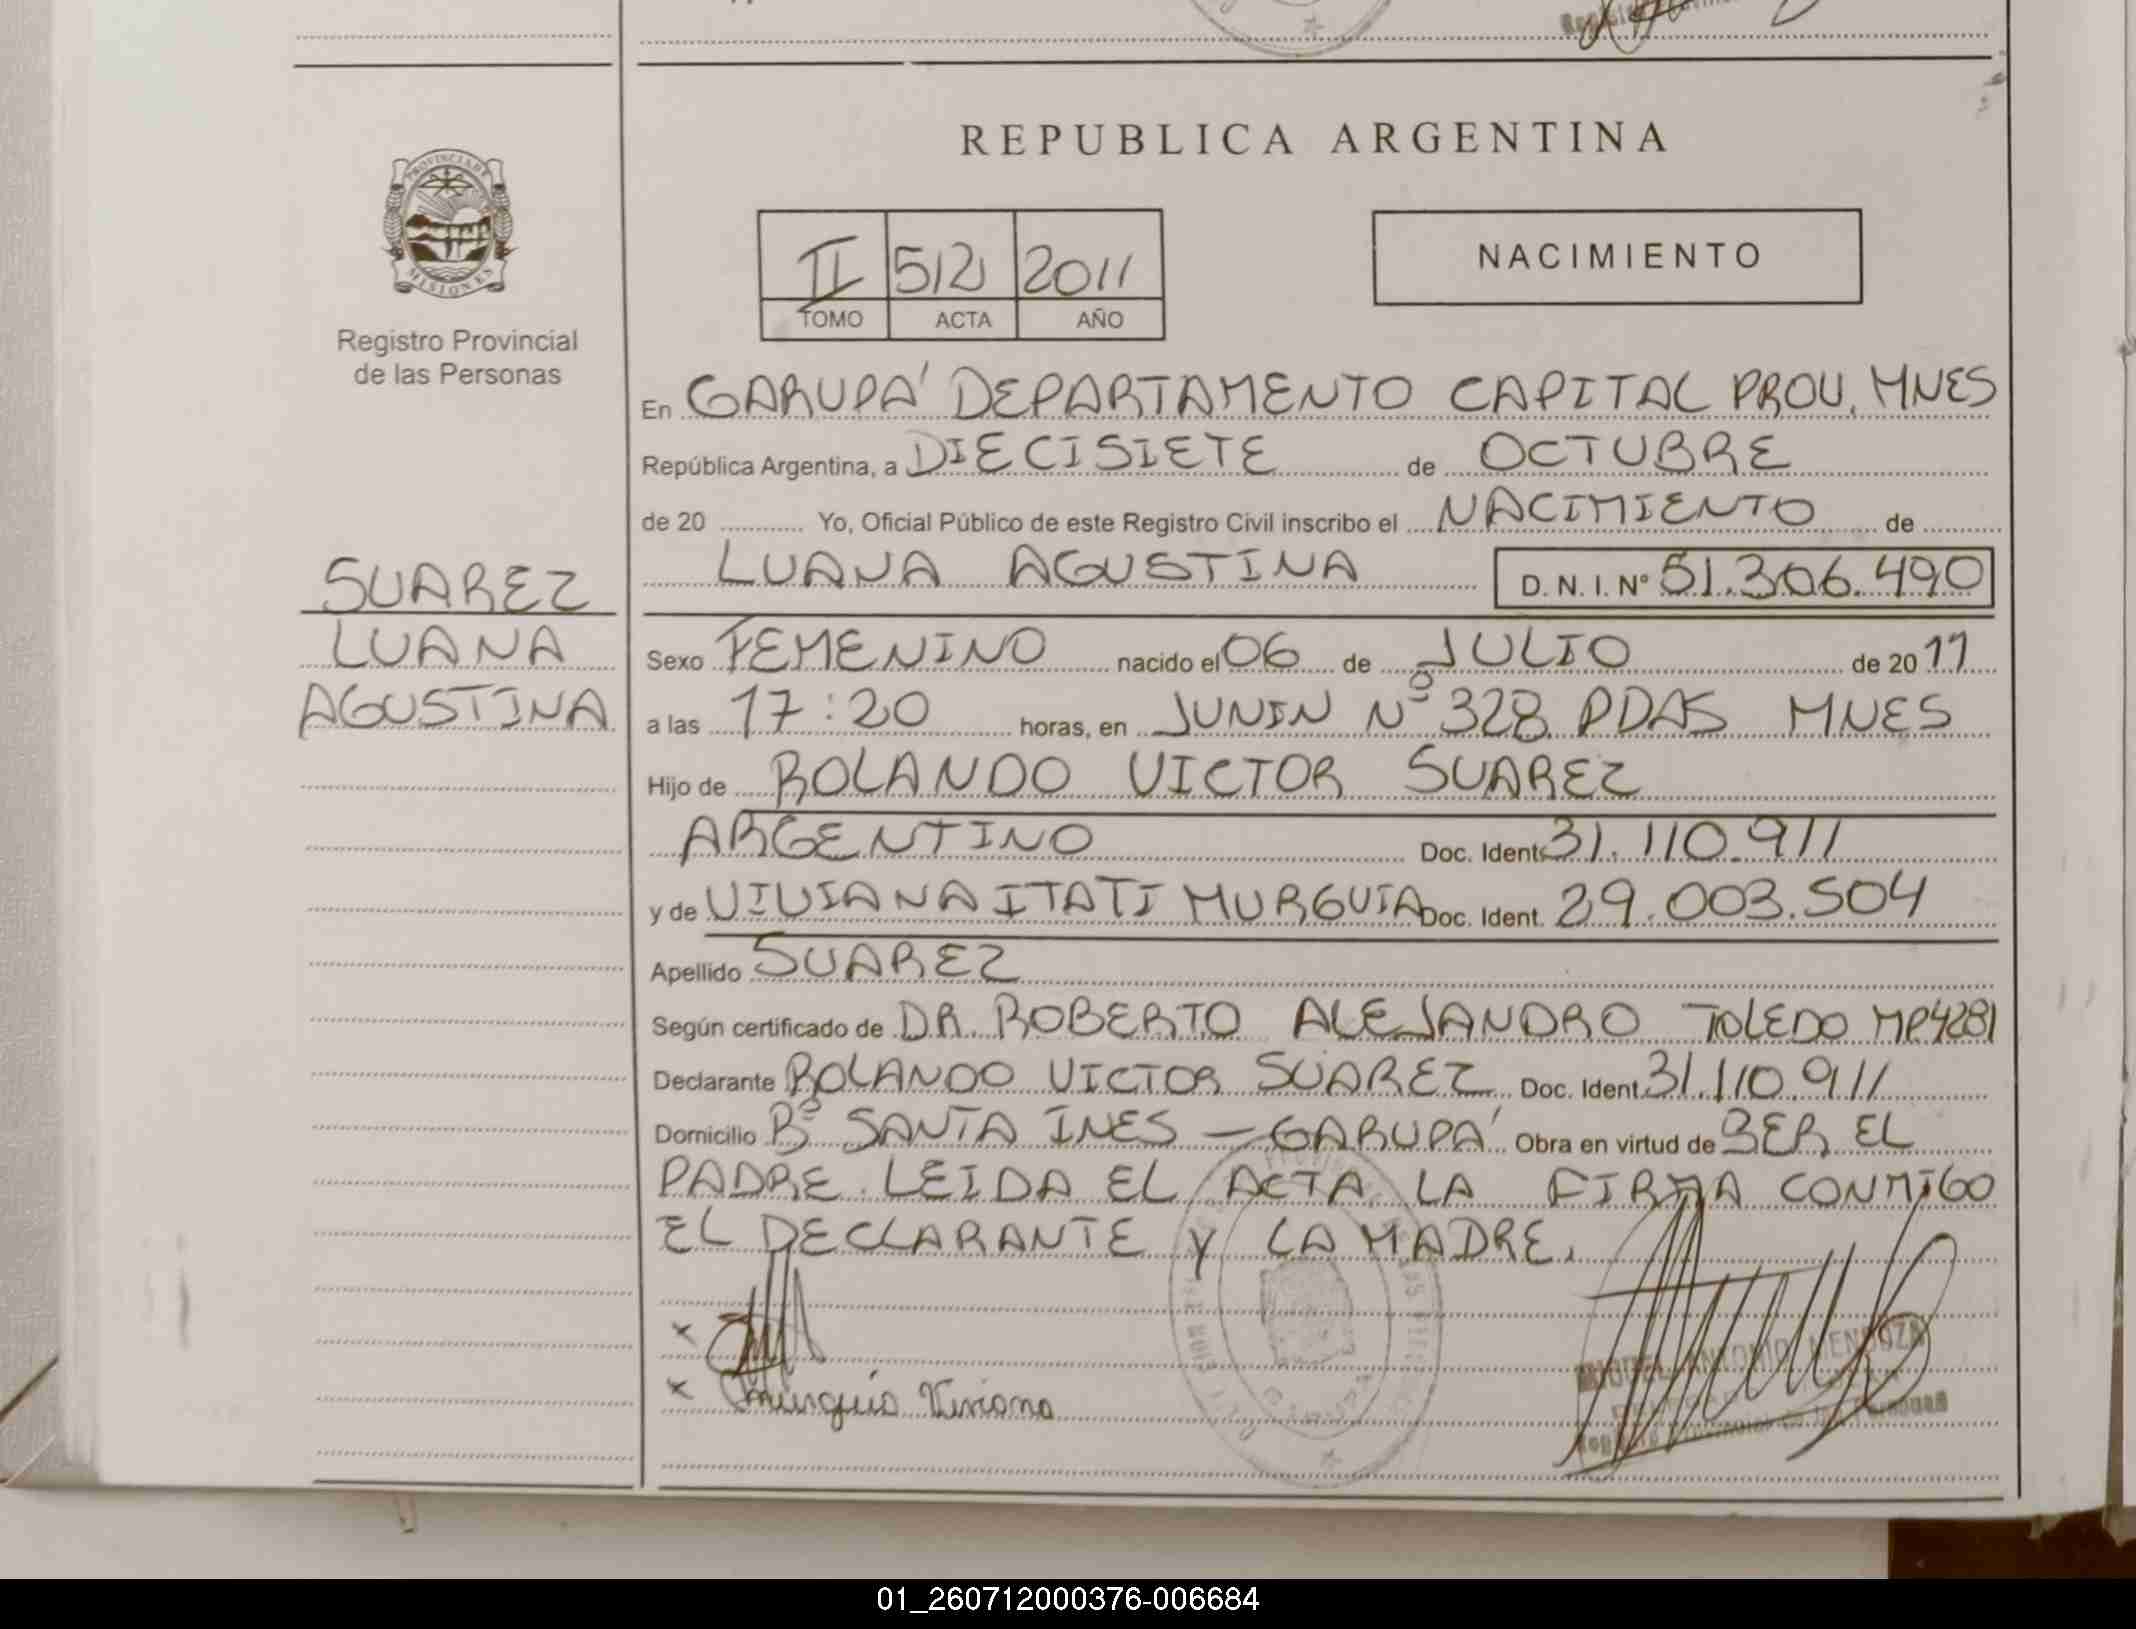 REPUBLICA ARGENTINA
PROVINCIA DE
MISIONES
Registro Provincial
de las Personas
II 512 2011
TOMO ACTA AÑO
NACIMIENTO
SUAREZ
LUANA
AGUSTINA
En GARUPA' DEPARTAMENTO CAPITAL PROV. MNES
República Argentina, a DIECISIETE de OCTUBRE
de 20 ............ Yo, Oficial Público de este Registro Civil inscribo el NACIMIENTO de
LUANA AGUSTINA D. N. I. Nº 51.306.490
Sexo FEMENINO nacido el 06 de JULIO de 2011
a las 17:20 horas, en JUNIN Nº 328 PDAS MNES
Hijo de ROLANDO VICTOR SUAREZ
ARGENTINO Doc. Ident. 31.110.911
y de VIVIANA ITATI MURGUIA Doc. Ident. 29.003.504
Apellido SUAREZ
Según certificado de DR. ROBERTO ALEJANDRO TOLEDO MP4281
Declarante ROLANDO VICTOR SUAREZ Doc. Ident. 31.110.911
Domicilio Bº SANTA INES - GARUPA' Obra en virtud de SER EL
PADRE. LEIDA EL ACTA LA FIRMA CONMIGO
EL DECLARANTE Y LA MADRE.
x
x Murguia Viviana
MIGUEL ANTONIO MENDOZA
01_260712000376-006684